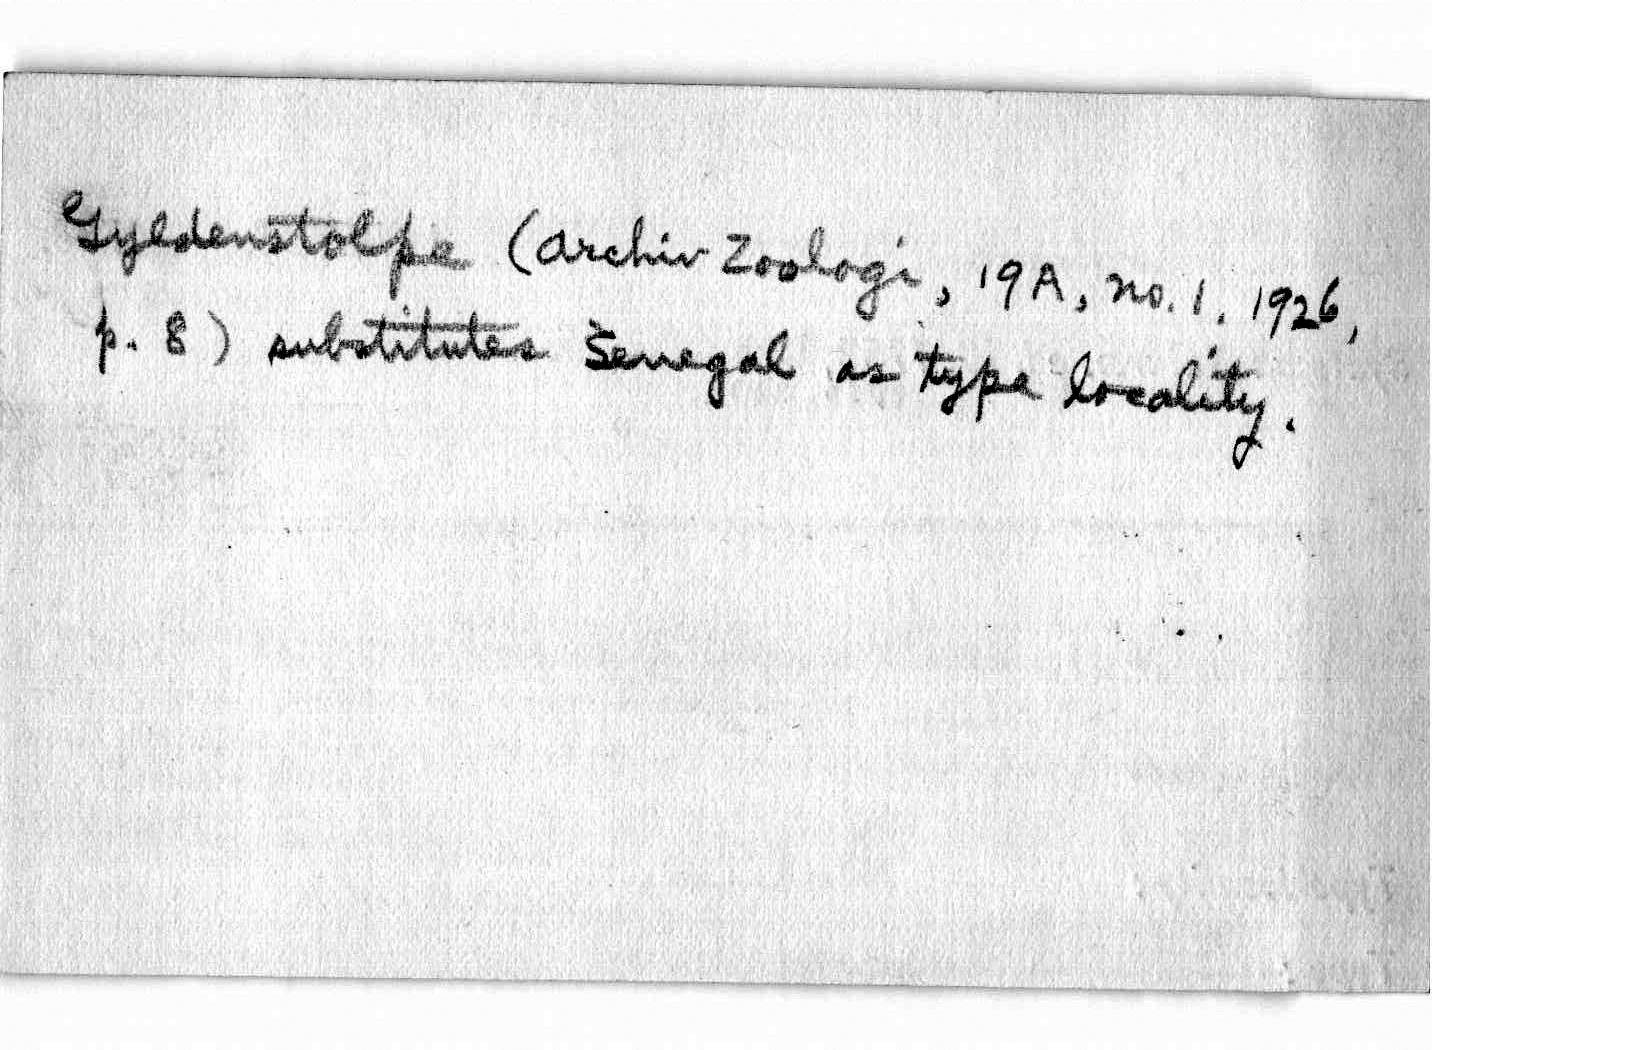 Gyldenstolpe (Archiv Zoologi, 19A, no. 1, 1926,
p. 8) substitutes Senegal as type locality.